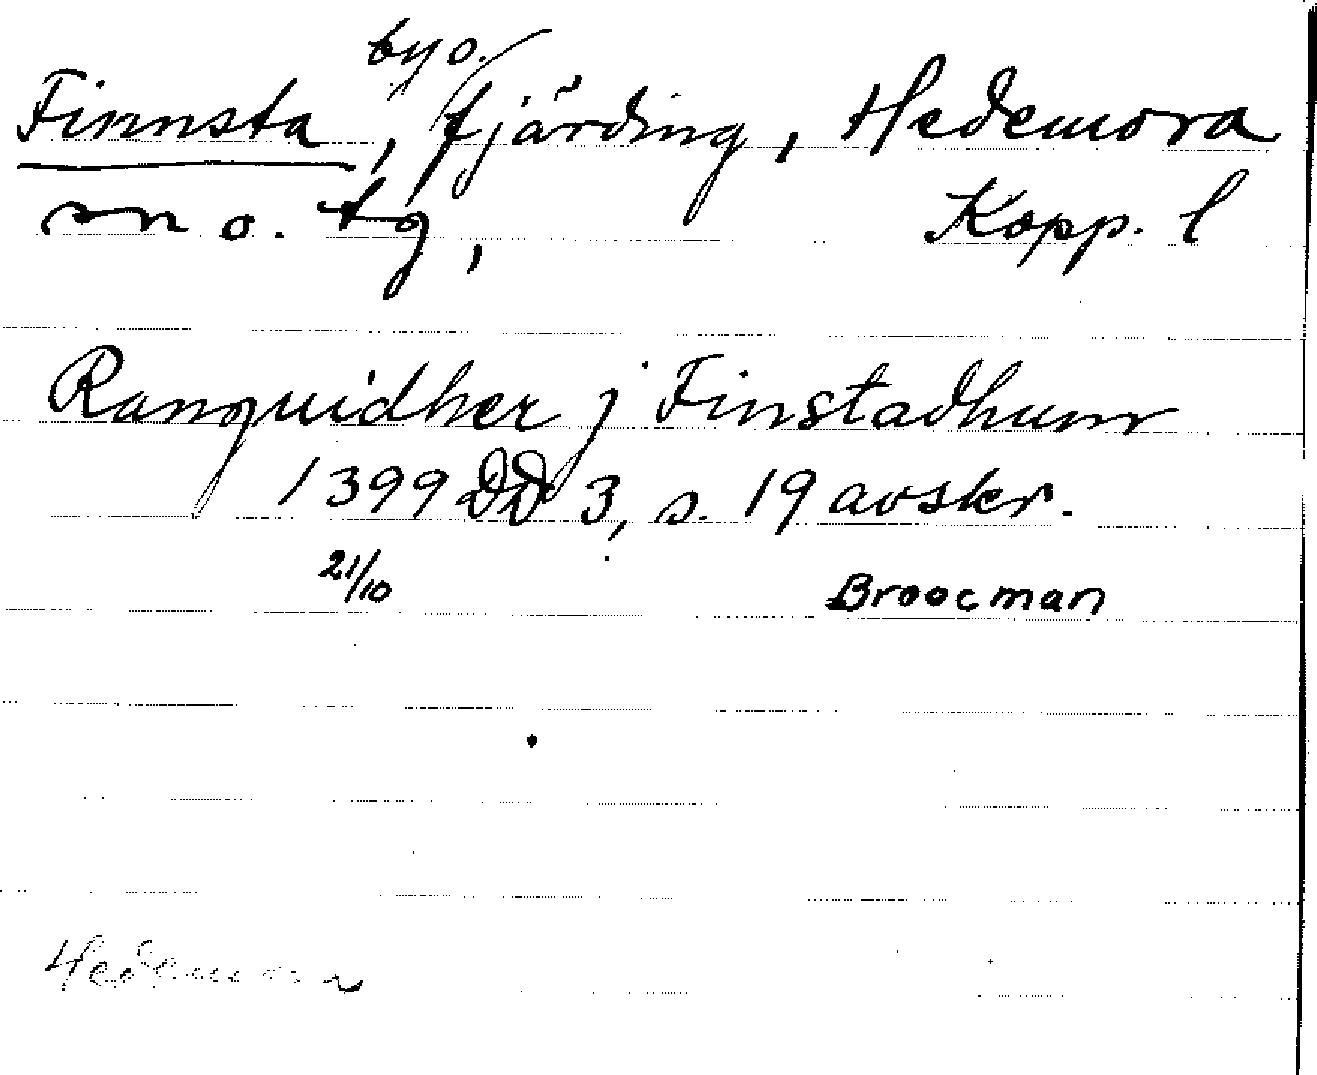 Finnsta, by o. fjärding, Hedemora
sn o. tg, Kopp. l
Ranquidher j Finstadhum
1399 DD 3, s. 19 avskr.
21/10 Broocman
Hedemora